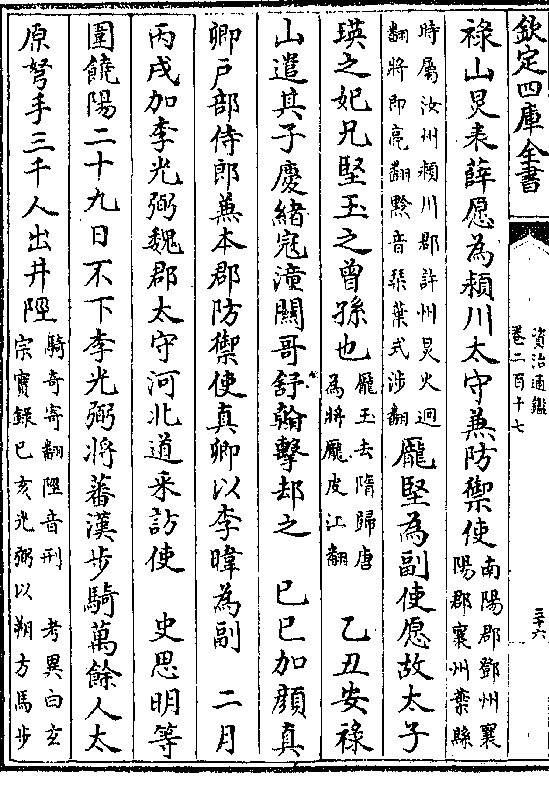 欽定四庫全書
資治通鑑
卷二百十七
三十六
祿山炅表薛愿為潁川太守兼防禦使
南陽郡鄧州襄
陽郡襄州葉縣
時屬汝州潁川郡許州炅火迥
翻將即亮翻黔音琴葉式涉翻
龎堅為副使愿故太子
瑛之妃兄堅玉之曾孫也
龎玉去隋歸唐
為將龎皮江翻
乙丑安祿
山遣其子慶緒寇潼關哥舒翰擊却之　己巳加顔真
卿戶部侍郎兼本郡防禦使真卿以李暐為副　二月
丙戌加李光弼魏郡太守河北道采訪使　史思明等
圍饒陽二十九日不下李光弼將蕃漢步騎萬餘人太
原弩手三千人出井陘
騎奇寄翻陘音刑　考異曰玄
宗實錄已亥光弼以朔方馬步